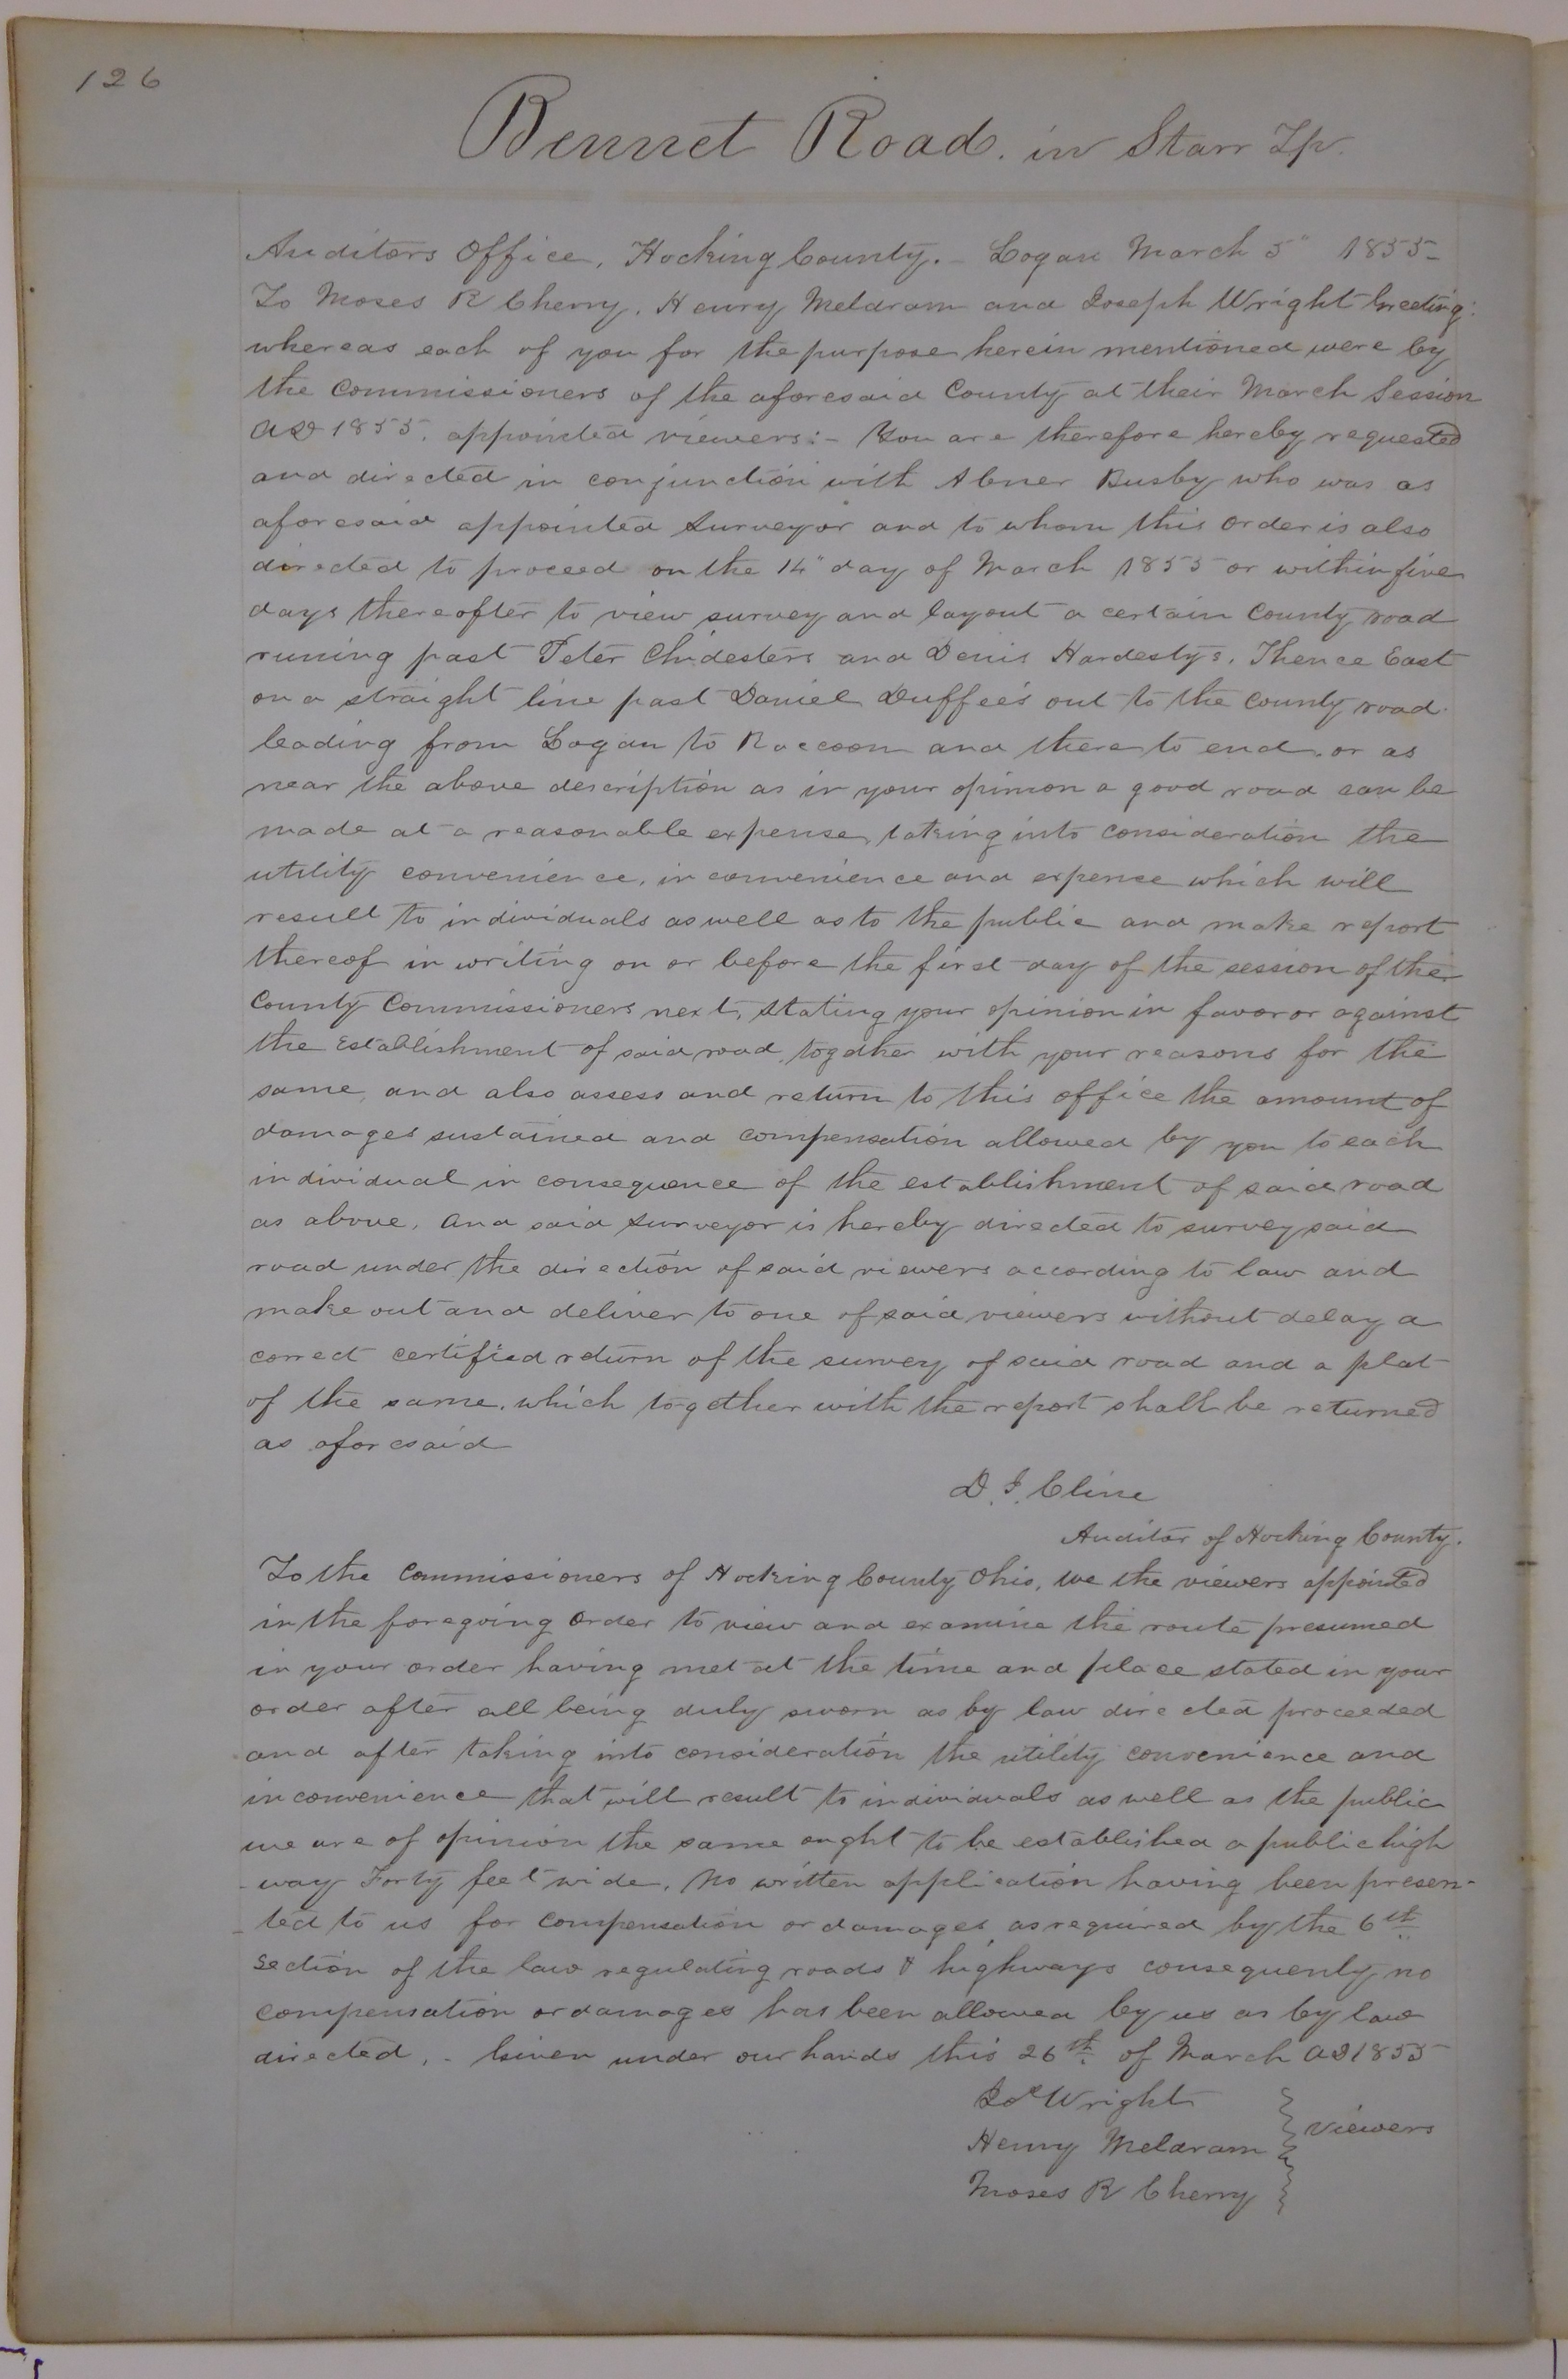 126
Bennet Road. in Starr Tp.
Auditors Office, Hocking County. - Logan March 5" 1855-
To Moses R Cherry, Henry Meldram and Joseph Wright Greeting:
whereas each of you for the purpose herein mentioned were by
the Commissioners of the aforesaid County at their March Session
AD 1855. appointed viewers:- You are therefore hereby requested
and directed in conjunction with Abner Busby who was as
aforesaid appointed Surveyor and to whom this order is also
directed to proceed on the 14" day of March 1855 or within five
days thereafter to view survey and layout a certain County road
runing past Peter Chidesters and Denis Hardestys. Thence East
on a straight line past Daniel Duffee's out to the County road
leading from Logan to Raccoon and there to end. or as
near the above description as in your opinion a good road can be
made at a reasonable expense, taking into consideration the
utility convenience, inconvenience and expense which will
result to individuals as well as to the public and make report
thereof in writing on or before the first day of the session of the
County Commissioners next, stating your opinion in favor or against
the establishment of said road, togather with your reasons for the
same, and also assess and return to this office the amount of
damages sustained and compensation allowed by you to each
individual in consequence of the establishment of said road
as above. and said surveyor is hereby directed to survey said
road under the direction of said viewers according to law and
make out and deliver to one of said viewers without delay a
correct certified return of the survey of said road and a plat
of the same. which together with the report shall be returned
as aforesaid
D. J. Cline
Auditor of Hocking County.
To the Commissioners of Hocking County Ohio, we the viewers appointed
in the foregoing order to view and examine the route presumed
in your order having met at the time and place stated in your
order after all being duly sworn as by law directed proceeded
and after taking into consideration the utility convenience and
inconvenience that will result to individuals as well as the public
we are of opinion the same ought to be established a public high
-way Forty feet wide. No written application having been presen-
-ted to us for compensation or damages, as required by the 6th
section of the law regulating roads & highways consequently no
compensation or damages has been allowed by us as by law
directed. - Given under our hands this 26th of March AD 1855
Jos Wright
Henry Meldram
Viewers
Moses R Cherry